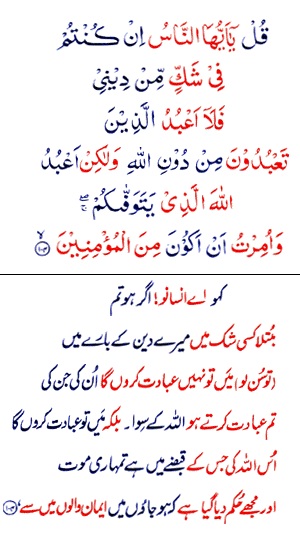 قُلْ يٰٓاَيُّهَا النَّاسُ اِنْ كُنْتُمْ
فِيْ شَكٍّ مِّنْ دِيْنِيْ
فَلَآ اَعْبُدُ الَّذِيْنَ
تَعْبُدُوْنَ مِنْ دُوْنِ اللّٰهِ وَلٰكِنْ اَعْبُدُ
اللّٰهَ الَّذِيْ يَتَوَفّٰىكُمْ ۖ
وَاُمِرْتُ اَنْ اَكُوْنَ مِنَ الْمُؤْمِنِيْنَ ۙ﴿۱۰۴﴾
کہو اے انسانو! اگر ہو تم
مُبتلا کسی شک میں میرے دین کے بارے میں
(تو سُن لو) میں تو نہیں عبادت کروں گا اُن کی جن کی
تم عبادت کرتے ہو اللہ کے سِوا۔ بلکہ میں تو عبادت کروں گا
اُس اللہ کی جس کے قبضے میں ہے تمہاری موت
اور مجھے حُکم دیا گیا ہے کہ ہو جاؤں میں ایمان والوں میں سے، ﴿۱۰۴﴾